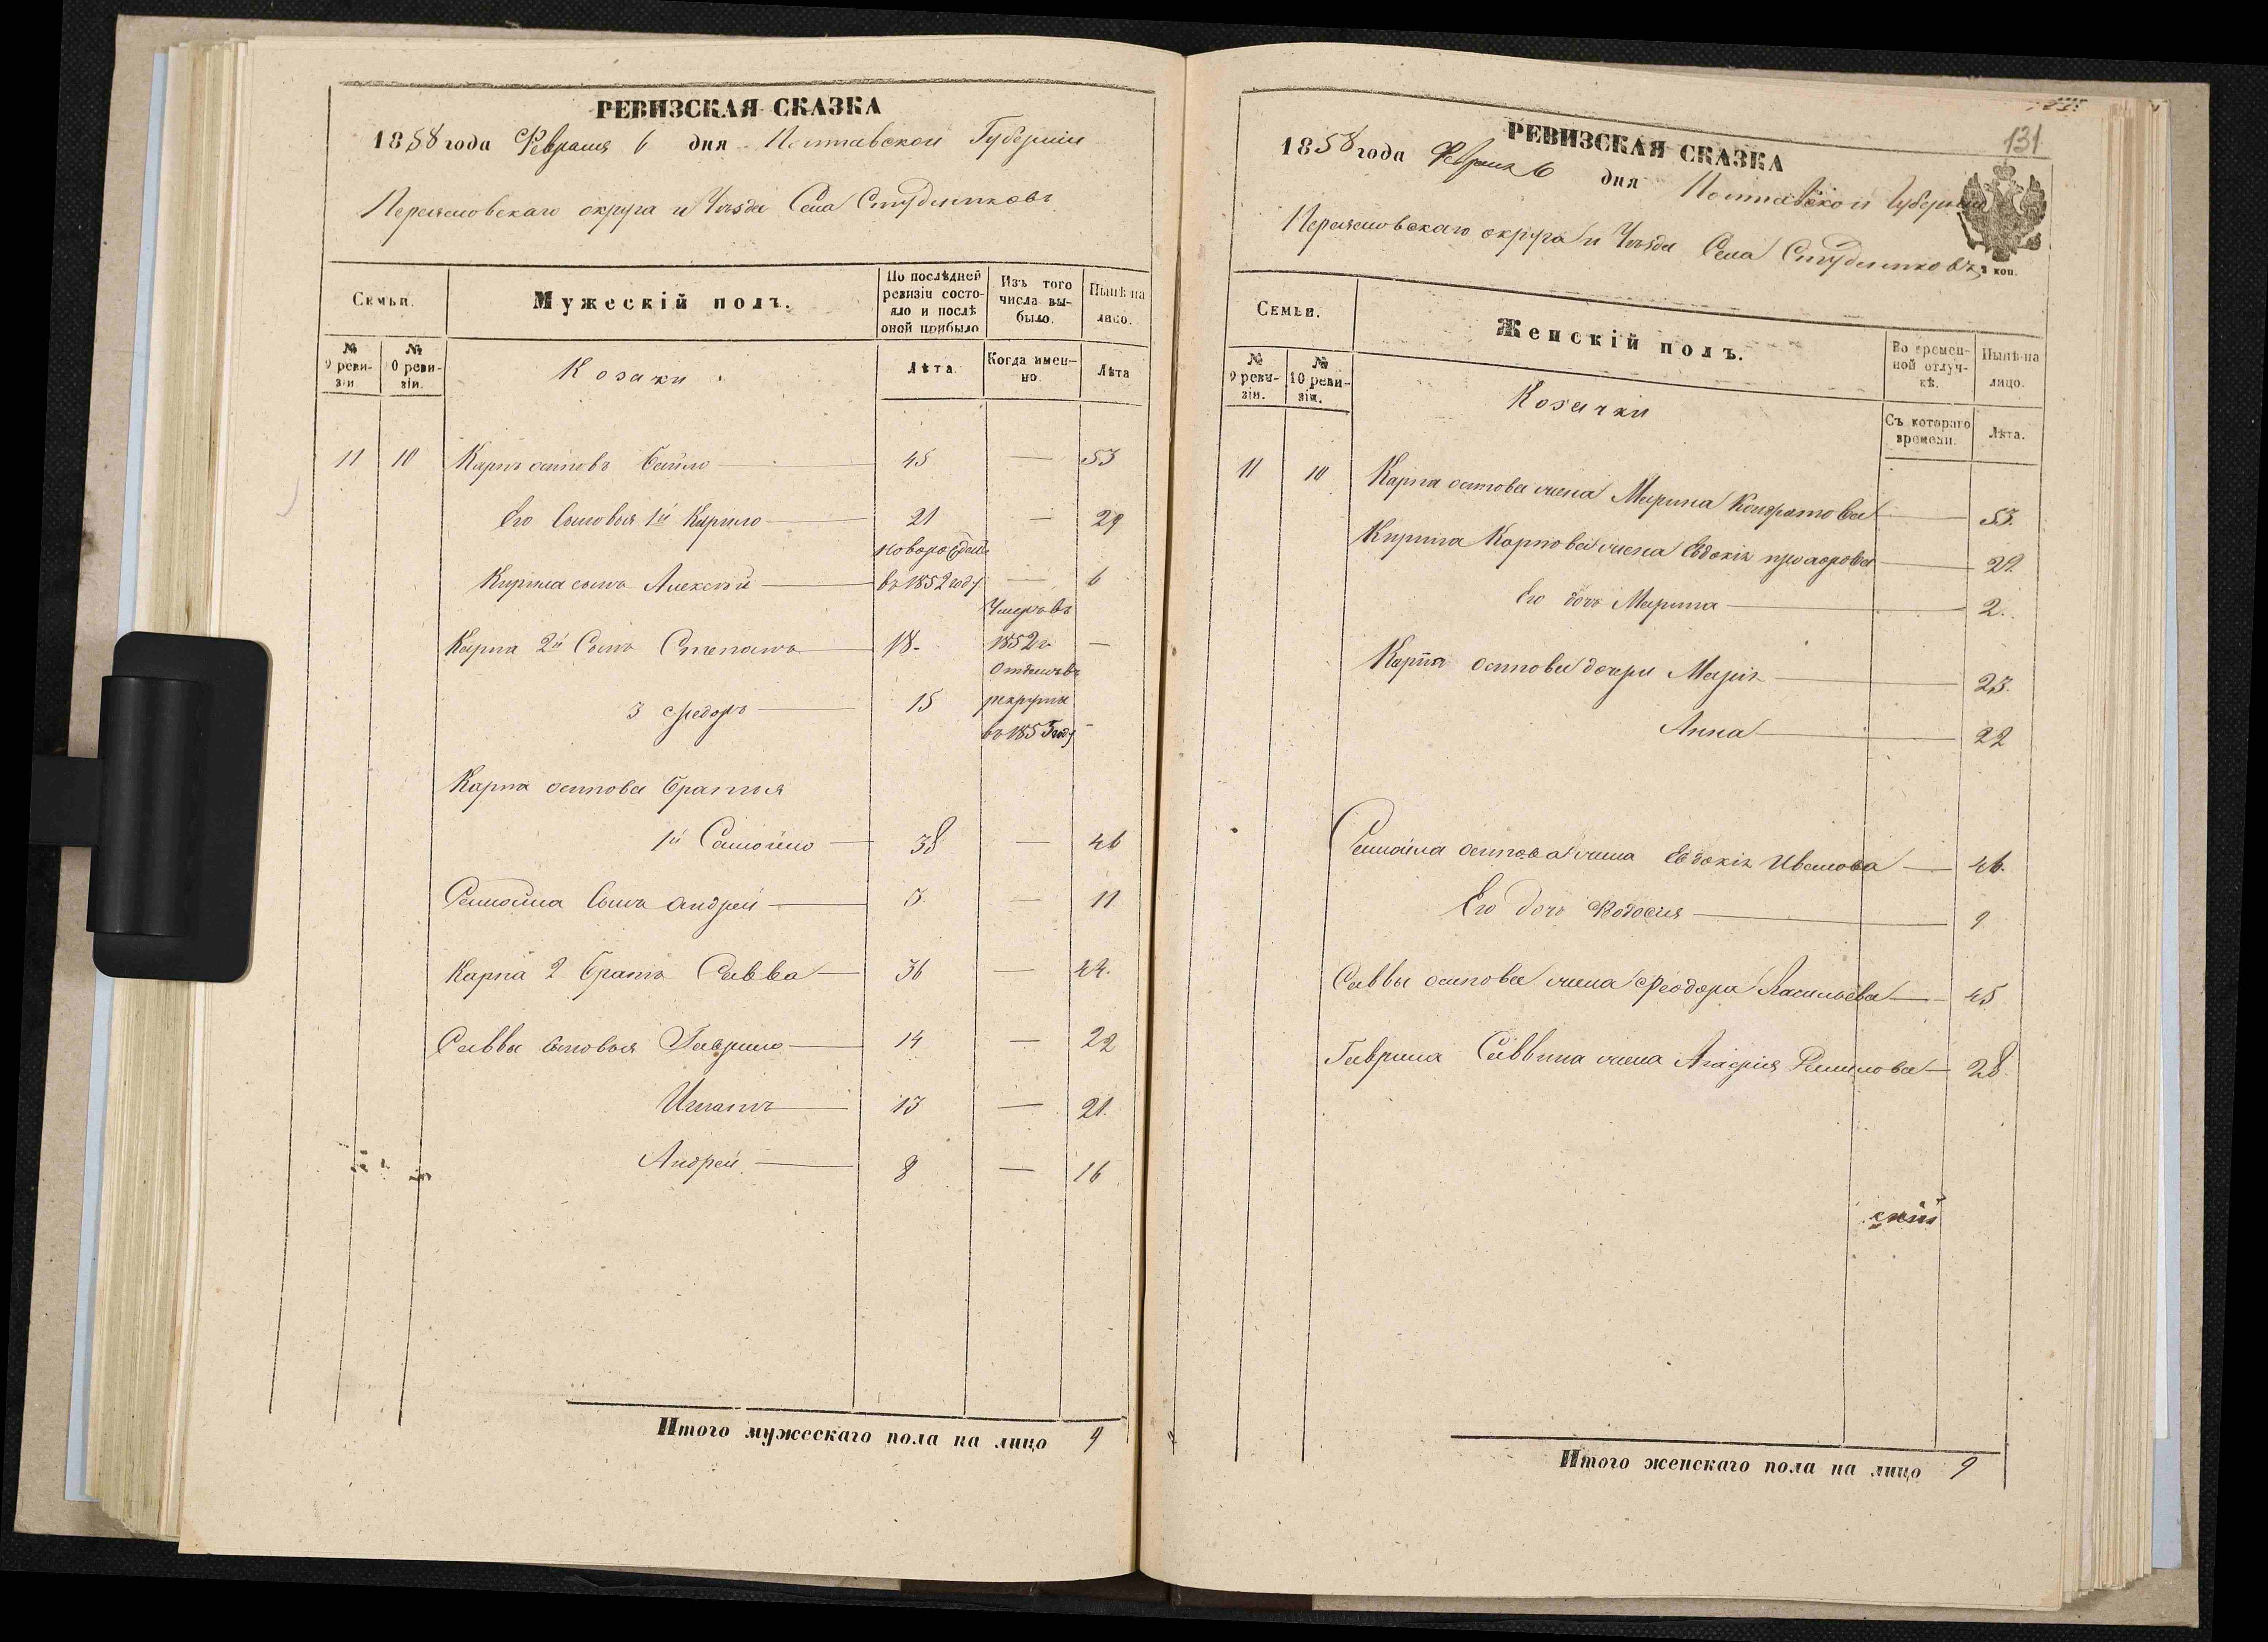 РЕВИЗСКАЯ СКАЗКА
1858 года Февраля 6 дня Полтавской Губерніи
Переяславскаго округа и Уѣзда Села Студениковъ
Семьи.
Мужескій полъ.
По послѣдней ревизіи состояло и послѣ оной прибыло
Изъ того числа выбыло.
Нынѣ на лицо.
№ 9 ревизіи.
№ 10 ревизіи.
Козаки
Лѣта
Когда именно.
Лѣта
11 10 Карпъ осиповъ — 45 — 53
Его сыновья 1й Кирило — 21 — 29
новорожден
Кирила сынъ Алексѣй — въ 1852 году — 6
Умеръ въ
Карпа 2й Сынъ Степанъ — 18 - 1852 г —
Отданъ въ
3 Федоръ — 15 рекруты
въ 1853 году -
Карпа осипова братья
1й Самойло — 38 — 46
Самойла сынъ андрей — 3 — 11
Карпа 2 братъ Савва — 36 — 44.
Саввы сыновья Гаврило — 14 — 22
Игнатъ — 13 — 21.
Андрей — 8 — 16
Итого мужескаго пола на лицо 9
131
РЕВИЗСКАЯ СКАЗКА
1858 года Февраля 6 дня Полтавской Губерніи
Переяславскаго округа и Уѣзда Села Студениковъ
коп.
Семьи.
Женскій полъ.
Во временной отлучкѣ.
Нынѣ на лицо.
№ 9 ревизіи.
№ 10 ревизіи.
Козачки
Съ котораго времени.
Лѣта.
11 10 Карпа осипова жена Марина Кондратова — 53.
Кирила Карпова жена Евдокія — 29.
Его дочь Марина — 2.
Карпа осипова дочери Марія — 23.
Анна — 22
Самойла осипова жена Евдокія Иванова — 46.
Его дочь Федосия — 9
Саввы осипова жена Феодора Васильева — 45
Гаврила Саввина жена Агафія — 28.
скій
Итого женскаго пола на лицо 9